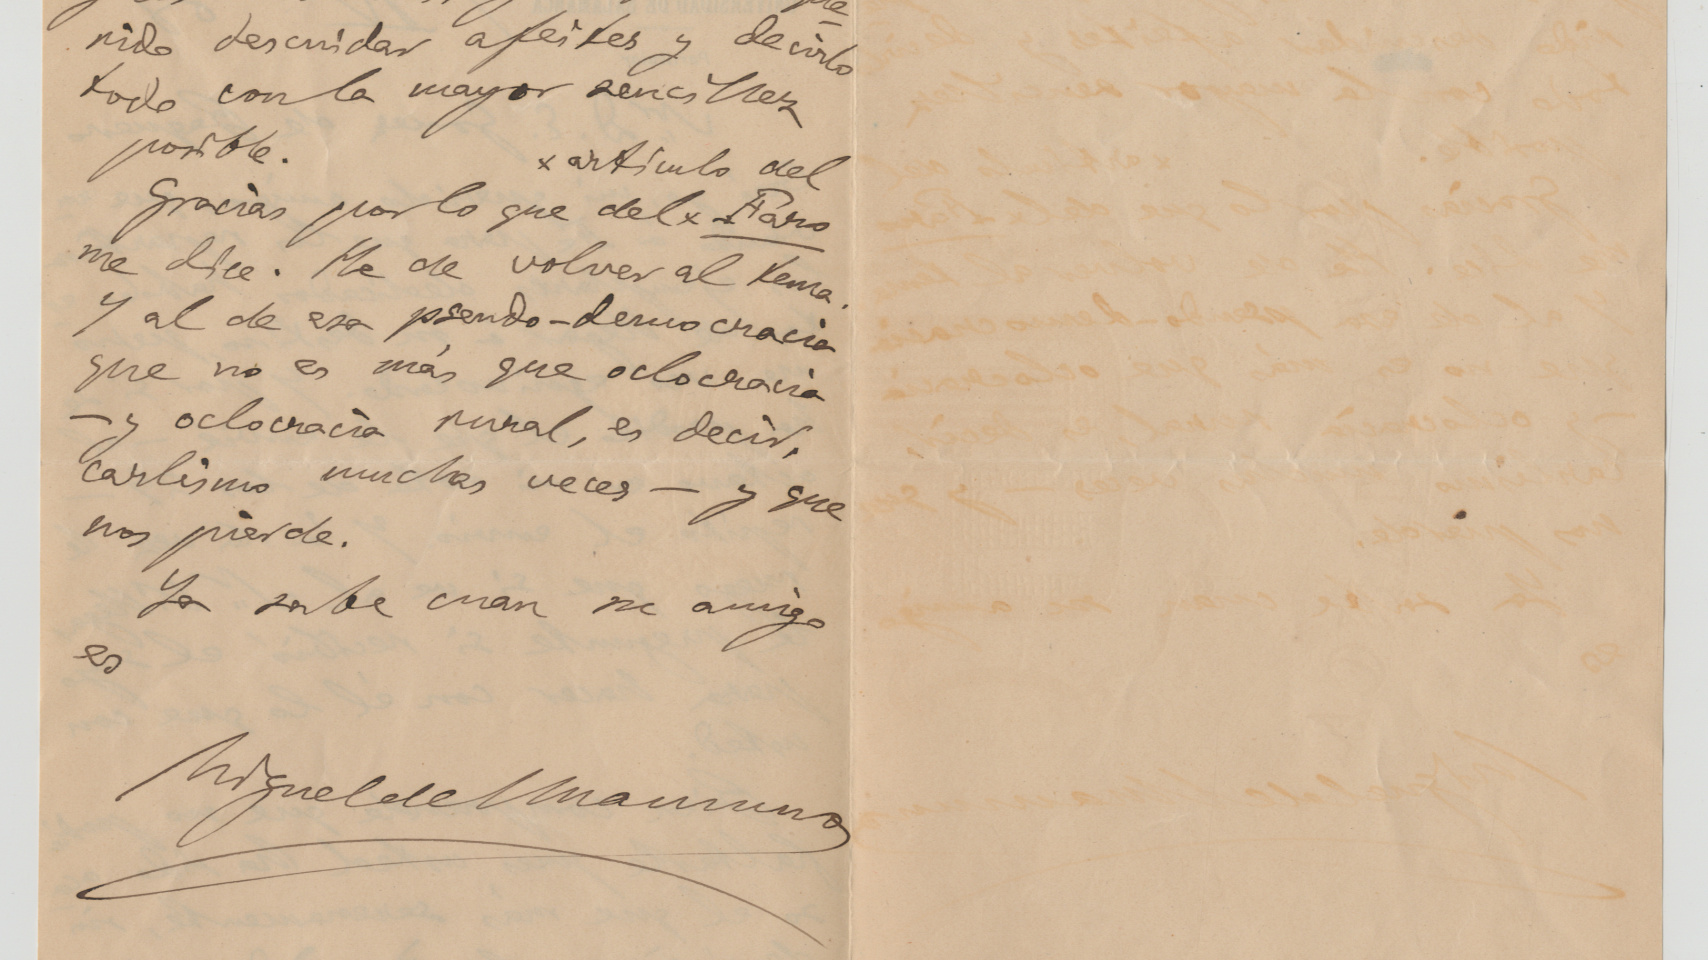 nido descuidar afeites y decirlo
todo con la mayor sencillez
posible.
x artículo del
Gracias por lo que del x Faro
me dice. He de volver al tema.
Y al de esa pseudo-democracia
que no es más que oclocracia
— y oclocracia rural, es decir,
carlismo muchas veces — y que
nos pierde.
Ya sabe cuan su amigo
es
Miguel de Unamuno